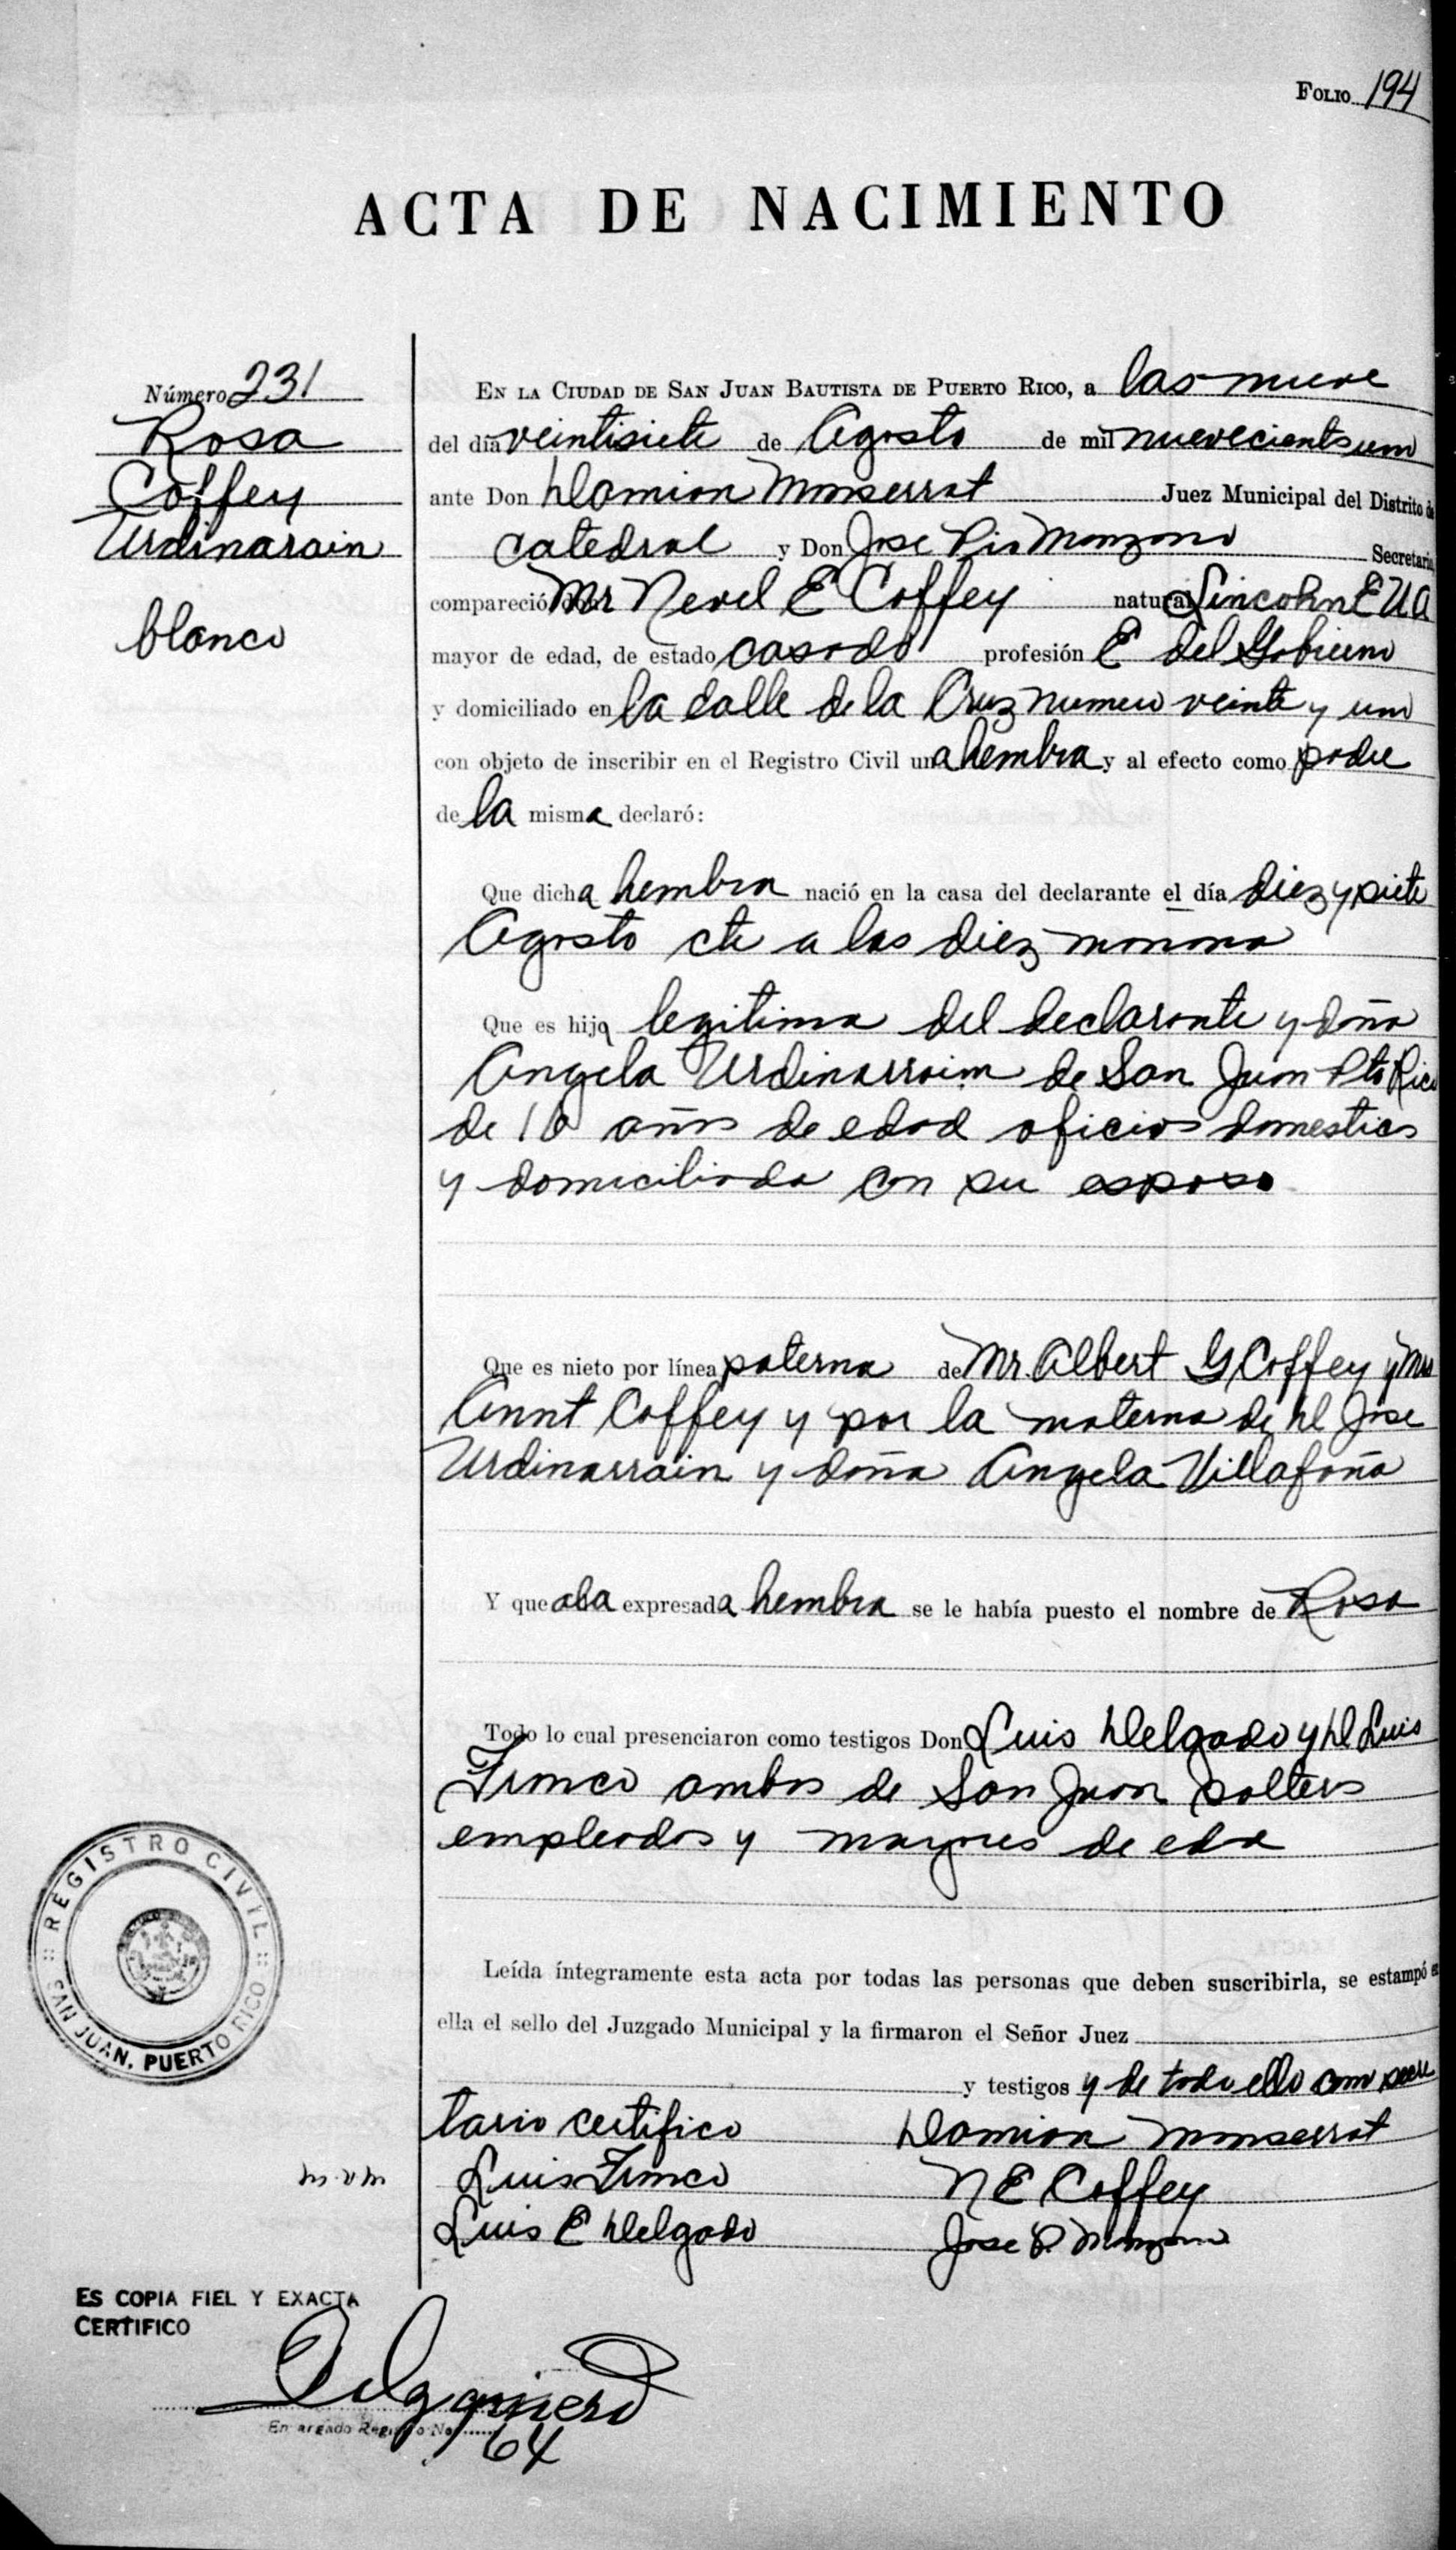 FOLIO 194
ACTA DE NACIMIENTO
Número 231
Rosa
Coffey
Urdinarain
blanco
EN LA CIUDAD DE SAN JUAN BAUTISTA DE PUERTO RICO, a las nueve
del día veintisiete de Agosto de mil nuevecientos uno
ante Don Damian Monserrat Juez Municipal del Distrito de
Catedral y Don Jose Pio Monzono Secretario,
compareció don Mr Nevel E Coffey natural Lincohn E U A
mayor de edad, de estado casado profesión E del Gobierno
y domiciliado en la calle de la Cruz numero veinte y uno
con objeto de inscribir en el Registro Civil una hembra y al efecto como padre
de la misma declaró:
Que dicha hembra nació en la casa del declarante el día diez y siete
Agosto cte a las diez manana
Que es hija legitima del declarante y doña
Angela Urdinarrain de San Juan Pto Rico
de 18 años de edad oficios domesticos
y domiciliada con su esposo
Que es nieto por línea paterna de Mr. Albert G Coffey y Mrs
Annt Coffey y por la materna de D Jose
Urdinarrain y doña Angela Villafaña
Y que a la expresada hembra se le había puesto el nombre de Rosa
Todo lo cual presenciaron como testigos Don Luis Delgado y D Luis
ambos de San Juan solteros
empleados y mayores de eda
Leída íntegramente esta acta por todas las personas que deben suscribirla, se estampó en
ella el sello del Juzgado Municipal y la firmaron el Señor Juez
y testigos y de todo ello como secre
tario certifico Damian Monserrat
Luis N E Coffey
Luis E Delgado Jose P. Monzono
REGISTRO CIVIL
SAN JUAN, PUERTO RICO
ES COPIA FIEL Y EXACTA
CERTIFICO
Encargado Registro No.
64